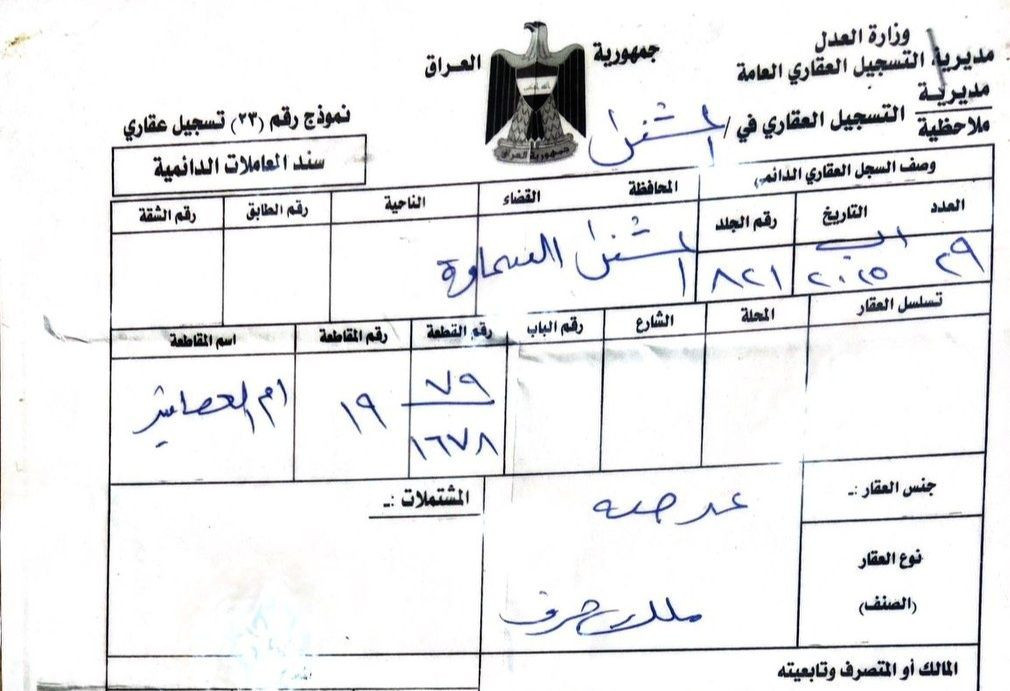 وزارة العدل
مديرية التسجيل العقاري العامة
مديرية
ملاحظية
التسجيل العقاري في /
جمهورية العراق
جمهورية العراق
نموذج رقم (٢٣) تسجيل عقاري
سند العاملات الدائمية
وصف السجل العقاري الدائمي
العدد التاريخ رقم الجلد المحافظة القضاء الناحية رقم الطابق رقم الشقة
٢٩ اب ٢٠٢٥ ٨٢١ السماوة
تسلسل العقار المحلة الشارع رقم الباب رقم القطعة رقم المقاطعة اسم المقاطعة
٧٩
١٦٧٨
١٩
ام العصافير
جنس العقار :-
عرصة
المشتملات :-
نوع العقار
(الصنف)
ملك صرف
المالك أو المتصرف وتابعيته